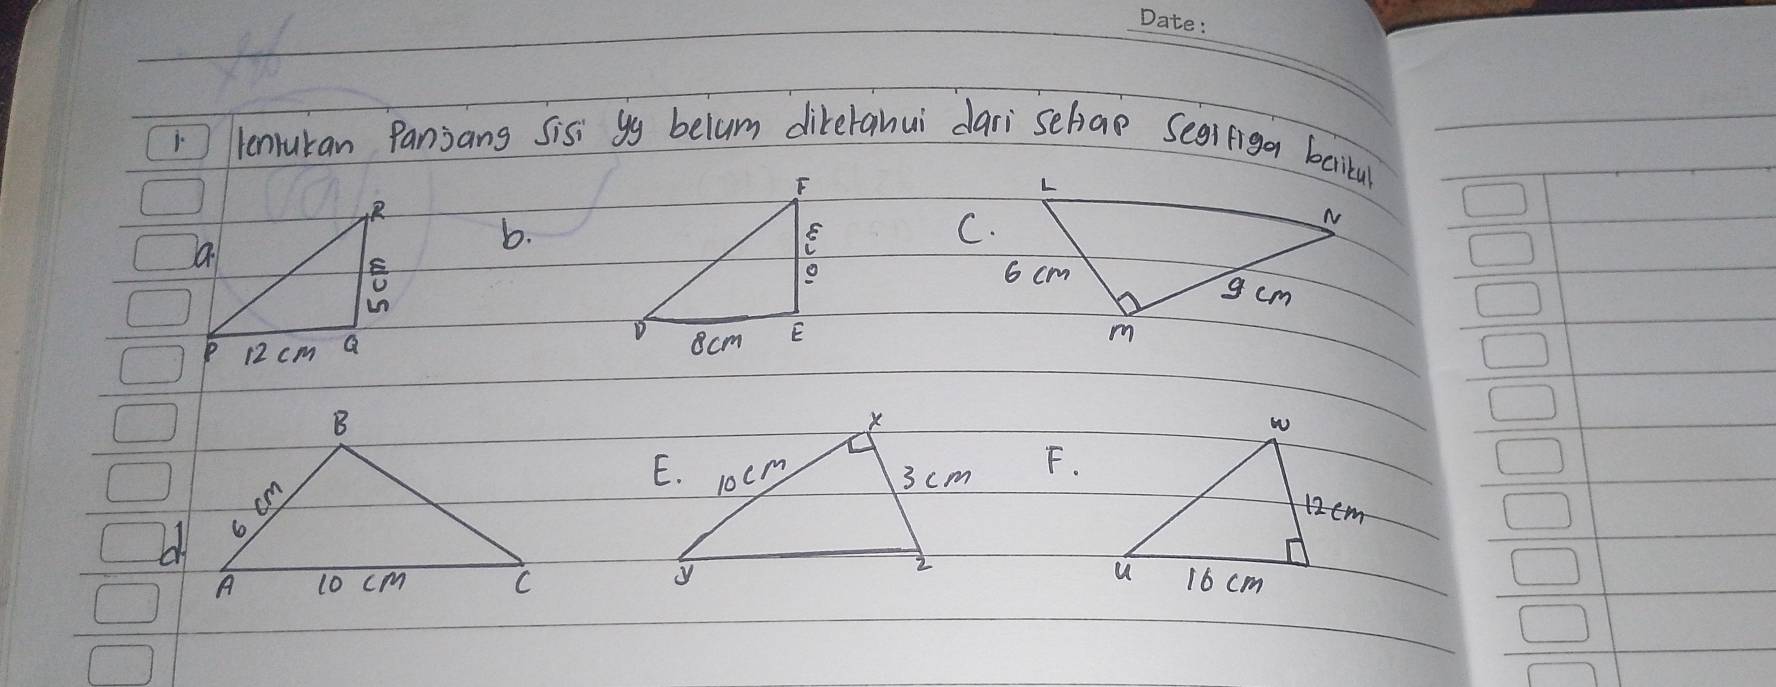 Date:
1. Tentukan Panjang Sisi yg belum diketahui dari setiap Segitiga berikut
a.
R
5 cm
P 12 cm Q
b.
F
D 8cm E
C.
L
N
6 cm
9 cm
M
d.
B
6 cm
A 10 cm C
E.
X
10 cm
3 cm
y
z
F.
W
12 cm
U 16 cm